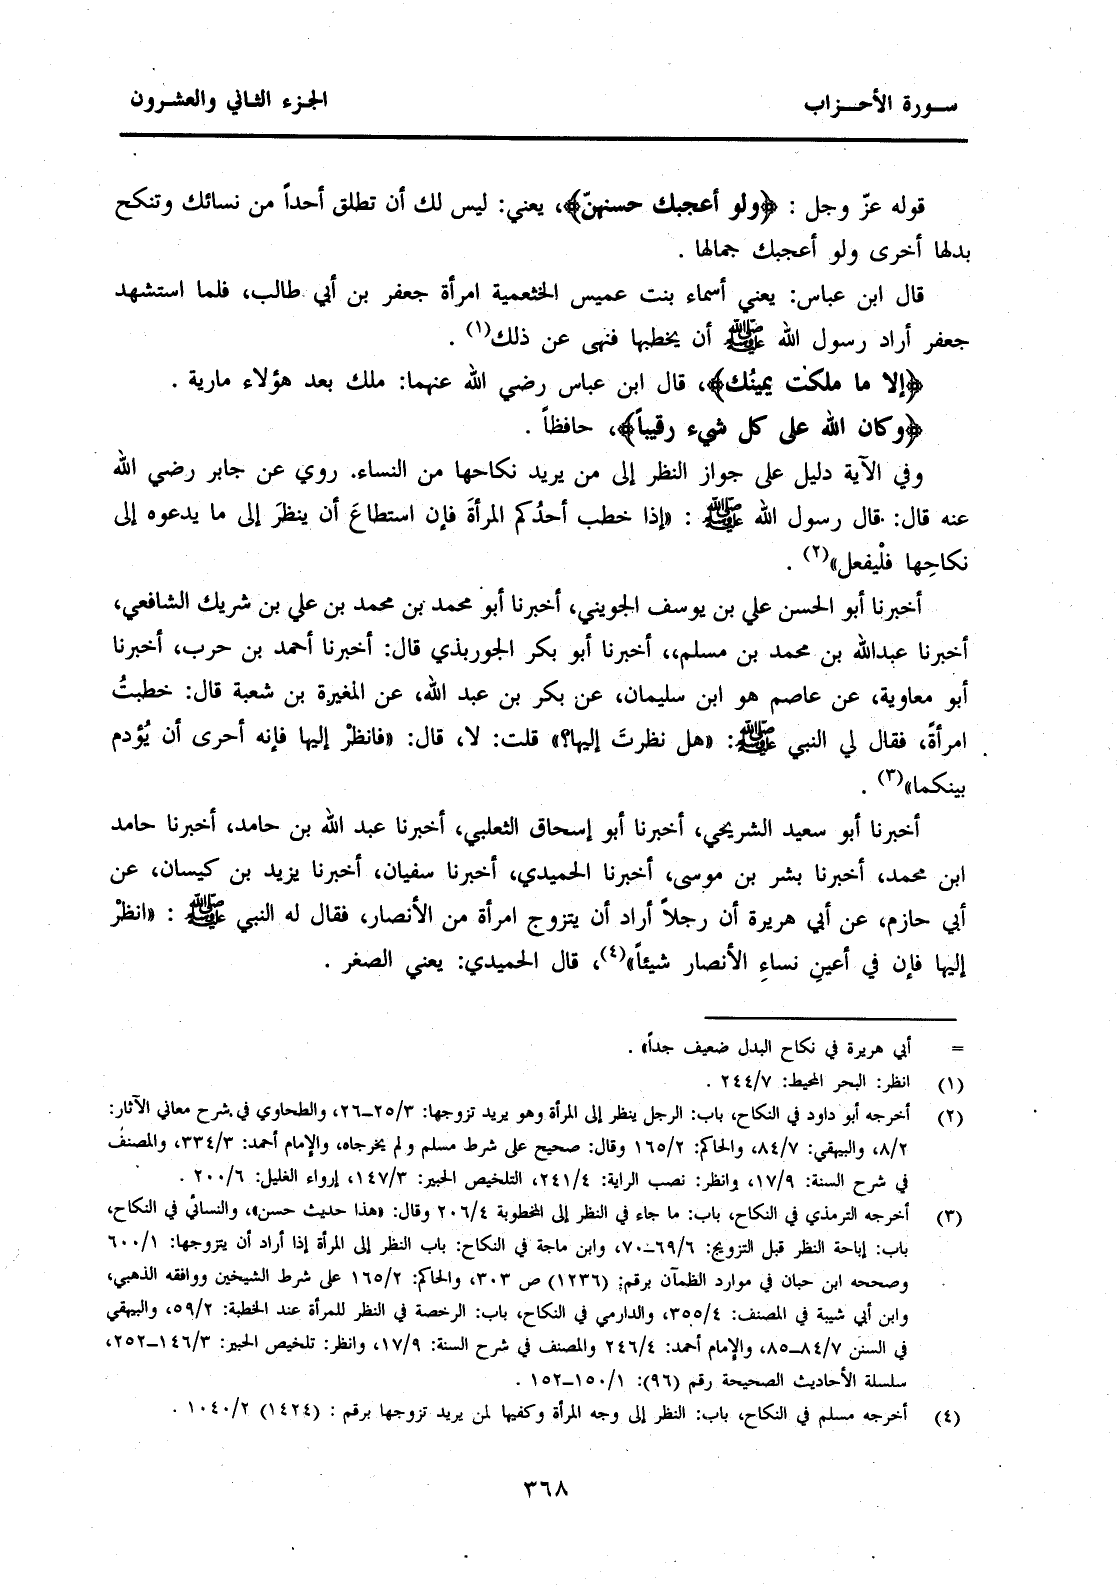 سورة الأحزاب
الجزء الثاني والعشرون
قوله عزّ وجل : ﴿ولو أعجبك حسنهنّ﴾، يعني: ليس لك أن تطلق أحداً من نسائك وتنكح
بدلها أخرى ولو أعجبك جمالها .
قال ابن عباس: يعني أسماء بنت عميس الخثعمية امرأة جعفر بن أبي طالب، فلما استشهد
جعفر أراد رسول الله ﷺ أن يخطبها فنهى عن ذلك(١) .
﴿إلا ما ملكت يمينُك﴾، قال ابن عباس رضي الله عنهما: ملك بعد هؤلاء مارية .
﴿وكان الله على كل شيء رقيباً﴾، حافظاً .
وفي الآية دليل على جواز النظر إلى من يريد نكاحها من النساء. روي عن جابر رضي الله
عنه قال: قال رسول الله ﷺ : «إذا خطب أحدُكم المرأةَ فإن استطاعَ أن ينظرَ إلى ما يدعوه إلى
نكاحِها فلْيفعل»(٢) .
أخبرنا أبو الحسن علي بن يوسف الجويني، أخبرنا أبو محمد بن محمد بن علي بن شريك الشافعي،
أخبرنا عبدالله بن محمد بن مسلم،، أخبرنا أبو بكر الجوربذي قال: أخبرنا أحمد بن حرب، أخبرنا
أبو معاوية، عن عاصم هو ابن سليمان، عن بكر بن عبد الله، عن المغيرة بن شعبة قال: خطبتُ
امرأةً، فقال لي النبي ﷺ: «هل نظرتَ إليها؟» قلت: لا، قال: «فانظرْ إليها فإنه أحرى أن يُؤدم
بينكما»(٣) .
أخبرنا أبو سعيد الشريحي، أخبرنا أبو إسحاق الثعلبي، أخبرنا عبد الله بن حامد، أخبرنا حامد
ابن محمد، أخبرنا بشر بن موسى، أخبرنا الحميدي، أخبرنا سفيان، أخبرنا يزيد بن كيسان، عن
أبي حازم، عن أبي هريرة أن رجلاً أراد أن يتزوج امرأة من الأنصار، فقال له النبي ﷺ : «انظرْ
إليها فإن في أعينِ نساءِ الأنصار شيئاً»(٤)، قال الحميدي: يعني الصغر .
= أبي هريرة في نكاح البدل ضعيف جداً» .
(١) انظر: البحر المحيط: ٢٤٤/٧ .
(٢) أخرجه أبو داود في النكاح، باب: الرجل ينظر إلى المرأة وهو يريد تزوجها: ٢٥/٣_٢٦، والطحاوي في شرح معاني الآثار:
٨/٢، والبيهقي: ٨٤/٧، والحاكم: ١٦٥/٢ وقال: صحيح على شرط مسلم ولم يخرجاه، والإمام أحمد: ٣٣٤/٣، والمصنف
في شرح السنة: ١٧/٩، وانظر: نصب الراية: ٢٤١/٤، التلخيص الحبير: ١٤٧/٣، إرواء الغليل: ٢٠٠/٦ .
(٣) أخرجه الترمذي في النكاح، باب: ما جاء في النظر إلى المخطوبة ٢٠٦/٤ وقال: «هذا حديث حسن»، والنسائي في النكاح،
باب: إباحة النظر قبل التزويج: ٦٩/٦_٧٠، وابن ماجة في النكاح: باب النظر إلى المرأة إذا أراد أن يتزوجها: ٦٠٠/١
وصححه ابن حبان في موارد الظمآن برقم: (١٢٣٦) ص ٣٠٣، والحاكم: ١٦٥/٢ على شرط الشيخين ووافقه الذهبي،
وابن أبي شيبة في المصنف: ٣٥٥/٤، والدارمي في النكاح، باب: الرخصة في النظر للمرأة عند الخطبة: ٥٩/٢، والبيهقي
في السنن ٨٤/٧_٨٥، والإمام أحمد: ٢٤٦/٤ والمصنف في شرح السنة: ١٧/٩، وانظر: تلخيص الحبير: ١٤٦/٣_٢٥٢،
سلسلة الأحاديث الصحيحة رقم (٩٦): ١٥٠/١_١٥٢ .
(٤) أخرجه مسلم في النكاح، باب: النظر إلى وجه المرأة وكفيها لمن يريد تزوجها برقم : (١٤٢٤) ١٠٤٠/٢ .
٣٦٨